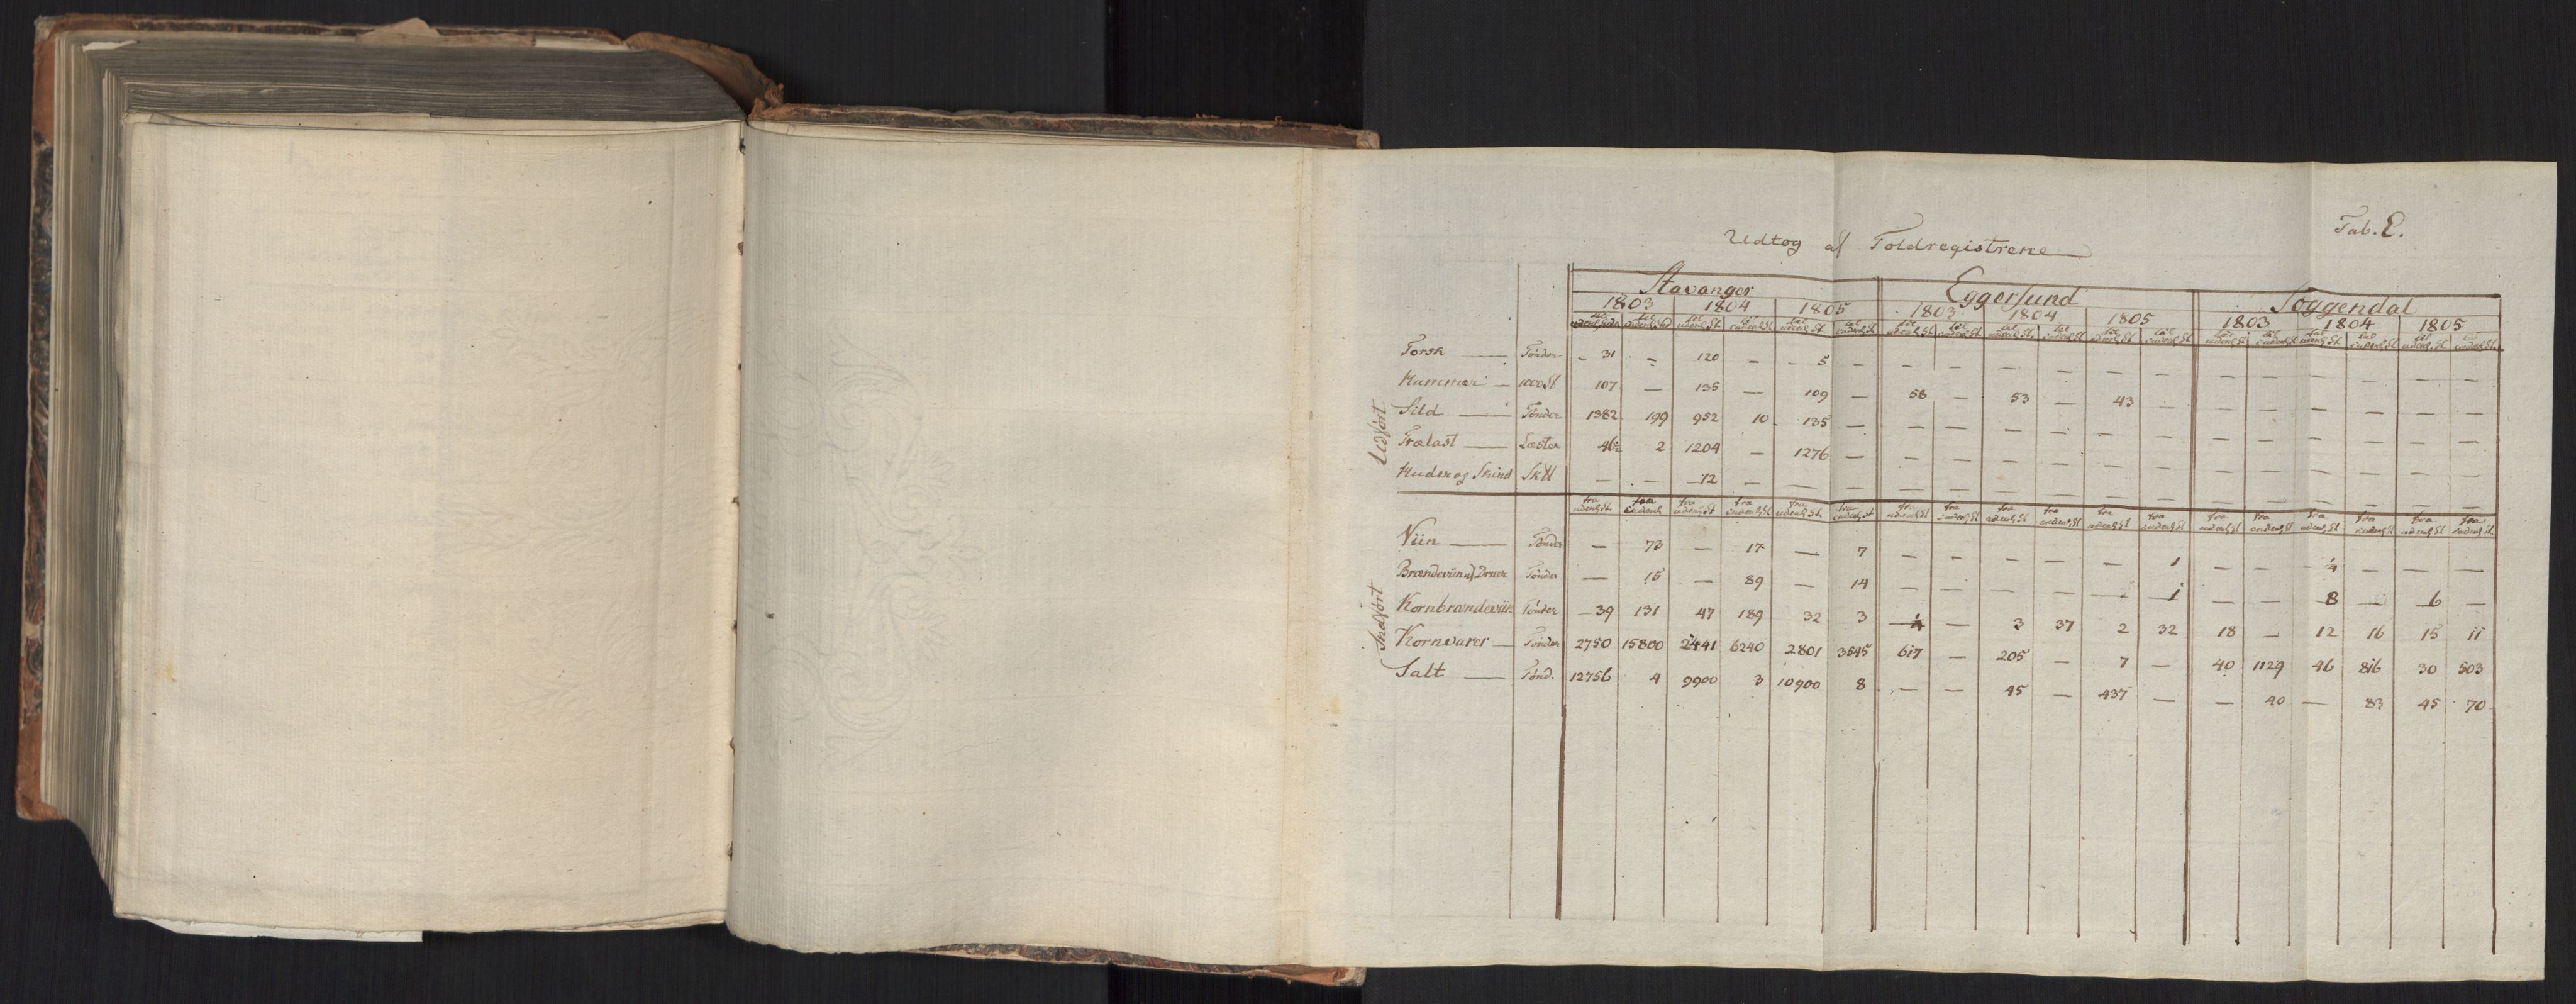 Tab. E.
Udtog af Toldregistrene
Stavanger Eggersund Soggendal
1803 1804 1805 1803 1804 1805 1803 1804 1805
til udenl. St. til indenl. St. til udenl. St. til indenl. St. til udenl. St. til indenl. St. til udenl. St. til indenl. St. til udenl. St. til indenl. St. til udenl. St. til indenl. St. til udenl. St. til indenl. St. til udenl. St. til indenl. St. til udenl. St. til indenl. St.
Udført
Torsk — Tønder — 31 — 120 — 5 — — — — — — — — — — — — —
Hummer — 1000 St 107 — 135 — 109 — 58 — 53 — 43 — — — — — — —
Sild — Tønder 1382 199 952 10 135 — — — — — — — — — — — — —
Trælast — Læster 462 2 1204 — 1276 — — — — — — — — — — — — —
Huder og Skind Sk℔ — — 12 — — — — — — — — — — — — — — —
fra udenl. St. fra indenl. fra udenl. St. fra indenl. St. fra udenl. St. fra indenl. St. fra udenl. St. fra indenl. St. fra udenl. St. fra indenl. St. fra udenl. St. fra indenl. St. fra udenl. St. fra indenl. St. fra udenl. St. fra indenl. St. fra udenl. St. fra indenl. St.
Indført
Viin — Tønder — 73 — 17 — 7 — — — — — 1 — — 4 — — —
Brændeviin af Druer Tønder — 15 — 89 — 14 — — — — — 1 — — 8 — 6 —
Kornbrændeviin Tønder — 39 131 47 189 32 3 4 — 3 37 2 32 18 — 12 16 15 11
Kornvarer — Tønder 2750 15800 2441 6240 2801 3645 617 — 205 — 7 — 40 1129 46 816 30 503
Salt — Tønd. 12756 4 9900 3 10900 8 — — 45 — 437 — — 40 — 83 45 70